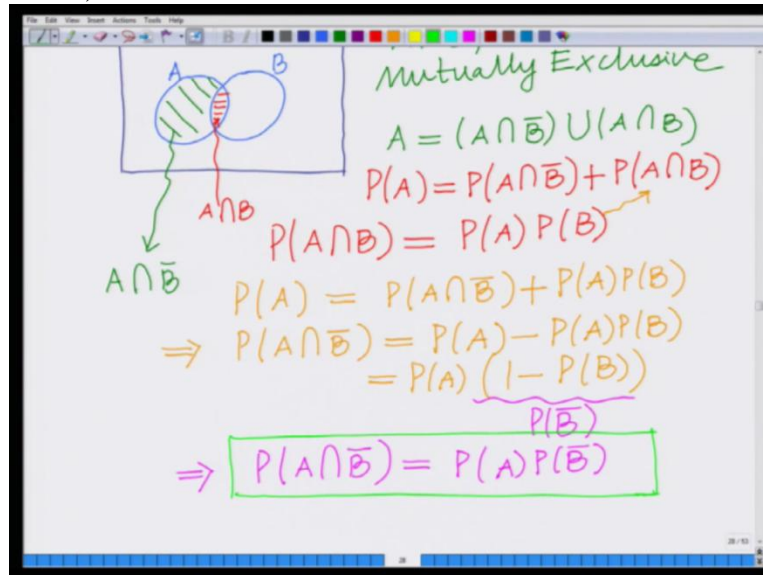 File Edit View Insert Actions Tools Help
Mutually Exclusive
A B
A = (A∩B̅) ∪ (A∩B)
P(A) = P(A∩B̅) + P(A∩B)
A∩B
P(A∩B) = P(A) P(B)
A∩B̅
P(A) = P(A∩B̅) + P(A)P(B)
⇒ P(A∩B̅) = P(A) - P(A)P(B)
= P(A) (1 - P(B))
P(B̅)
⇒ P(A∩B̅) = P(A) P(B̅)
28 / 53
28